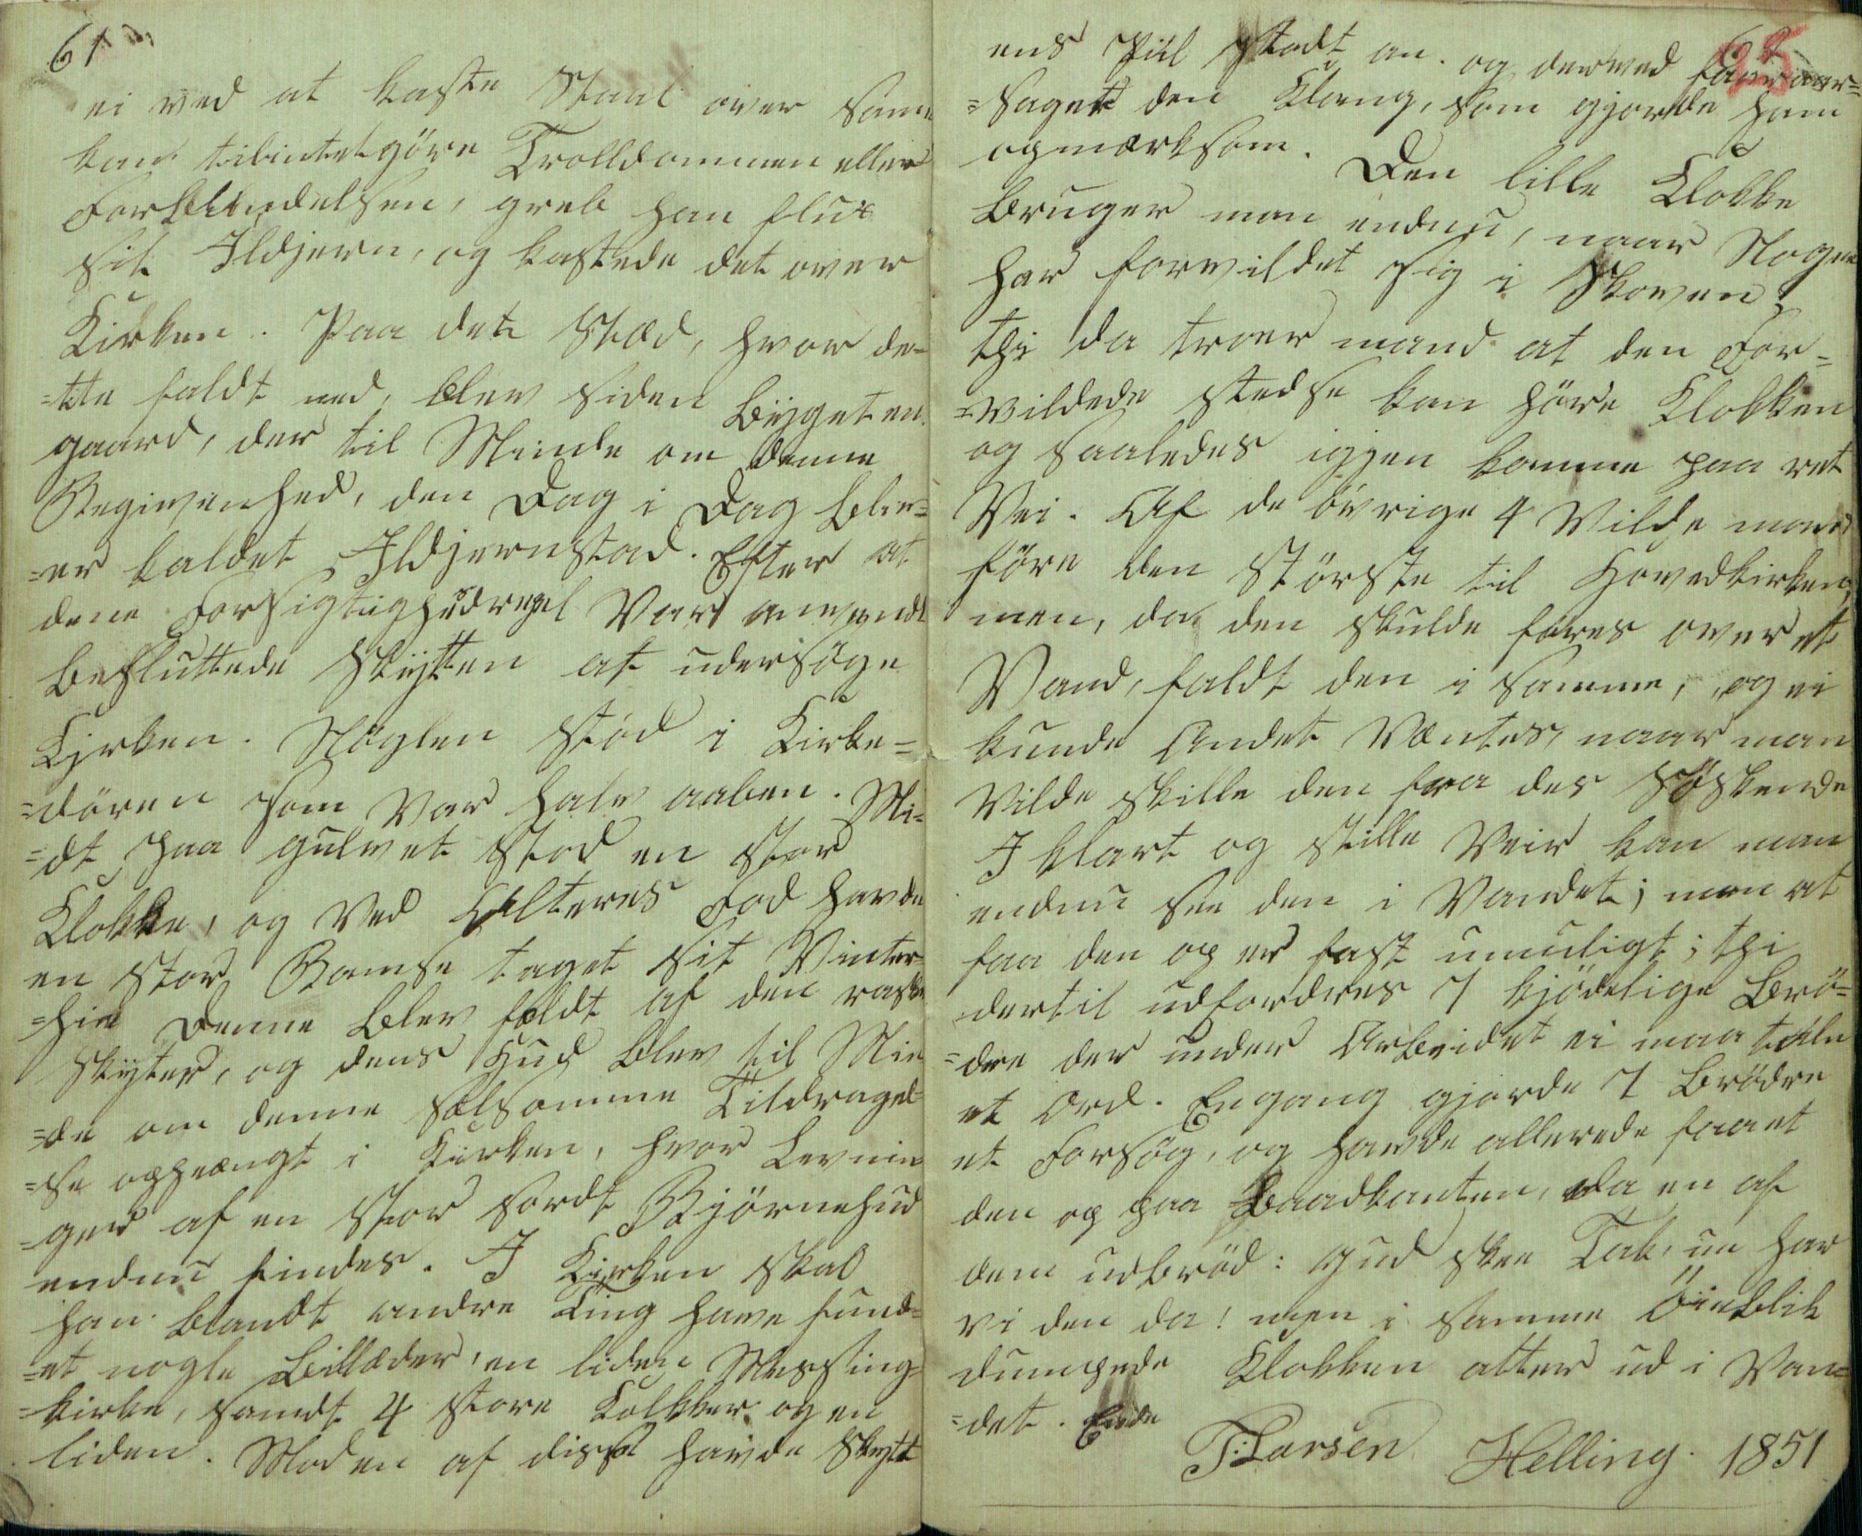 61
ei ved at kaste Staal over sam
kan tilintetgöre Trolldommen eller
Forblindelsen, greb han flux
sit Ildjern, og kastede det over
Kirken. Paa det Stæd, hvor de-
-tte faldt ned, blev siden bÿget en
gaard, der til Minde om denne
Begivenhed, den Dag i Dag bliv-
-er kaldet Ildjernstad. Efter at
dene Forsigtighedregel Var anvendt
besluttede Skÿtten at udersöge
Kjrken. Nöglen stod i Kirke-
-dören som Var halv aaben. Mi-
-dt paa gulvet stod en stor
Klokke, og Ved Alteres Fod havde
en stor Bamse taget sit Vinter-
-hie Denne blev fældt af den raske
Skÿter, og dens Hud blev til Min
-de om denne selsomme Tildragel-
-se ophængt i Kirken, hvor Levnin
-ger af en stor sordt Björnehud
endnu findes. I Kirken skal
han blandt andre Ting have fund-
-et nogle Billæder, en liden Messing-
-kirke, samdt 4 store Kolkker og en
liden. Moden af disse havde Skytt
95
ens Piil stodt an. og derved foraar-
-saget den Klang, som gjorde ham
opmærksom. Den lille Klokke
bruger man endnu, naar Nogen
har forvildet sig i Skoven;
thi da troer mand at den For-
-vildede stedse kan höre Klokken
og saaledes igjen komme paa ret
Vei. Af de övrige 4 Vilde man
före den störste til Hovedkirken,
men, da den skulde föres over et
Vand, faldt den i samme, og ei
kunde Andet Ventes, naar man
Vilde skille den fra des Söskende
I klart og stille Veir kan man
endnu see den i Vandet; men at
faa den op er fast umuligt; thi
dertil udfordres 7 kjödelige Brö-
-dre der under Arbeidet ei maa tale
et Ord. Engang gjorde 7 Brödre
et Forsög, og havde allerede faaet
den op paa Baadkanten, da en af
dem udbröd: Gud skee Tak, nu har
vi den da! men i samme Öieblik
dumpede Klokken atter ud i Van-
-det. Ende
T: Larsen Helling. 1851